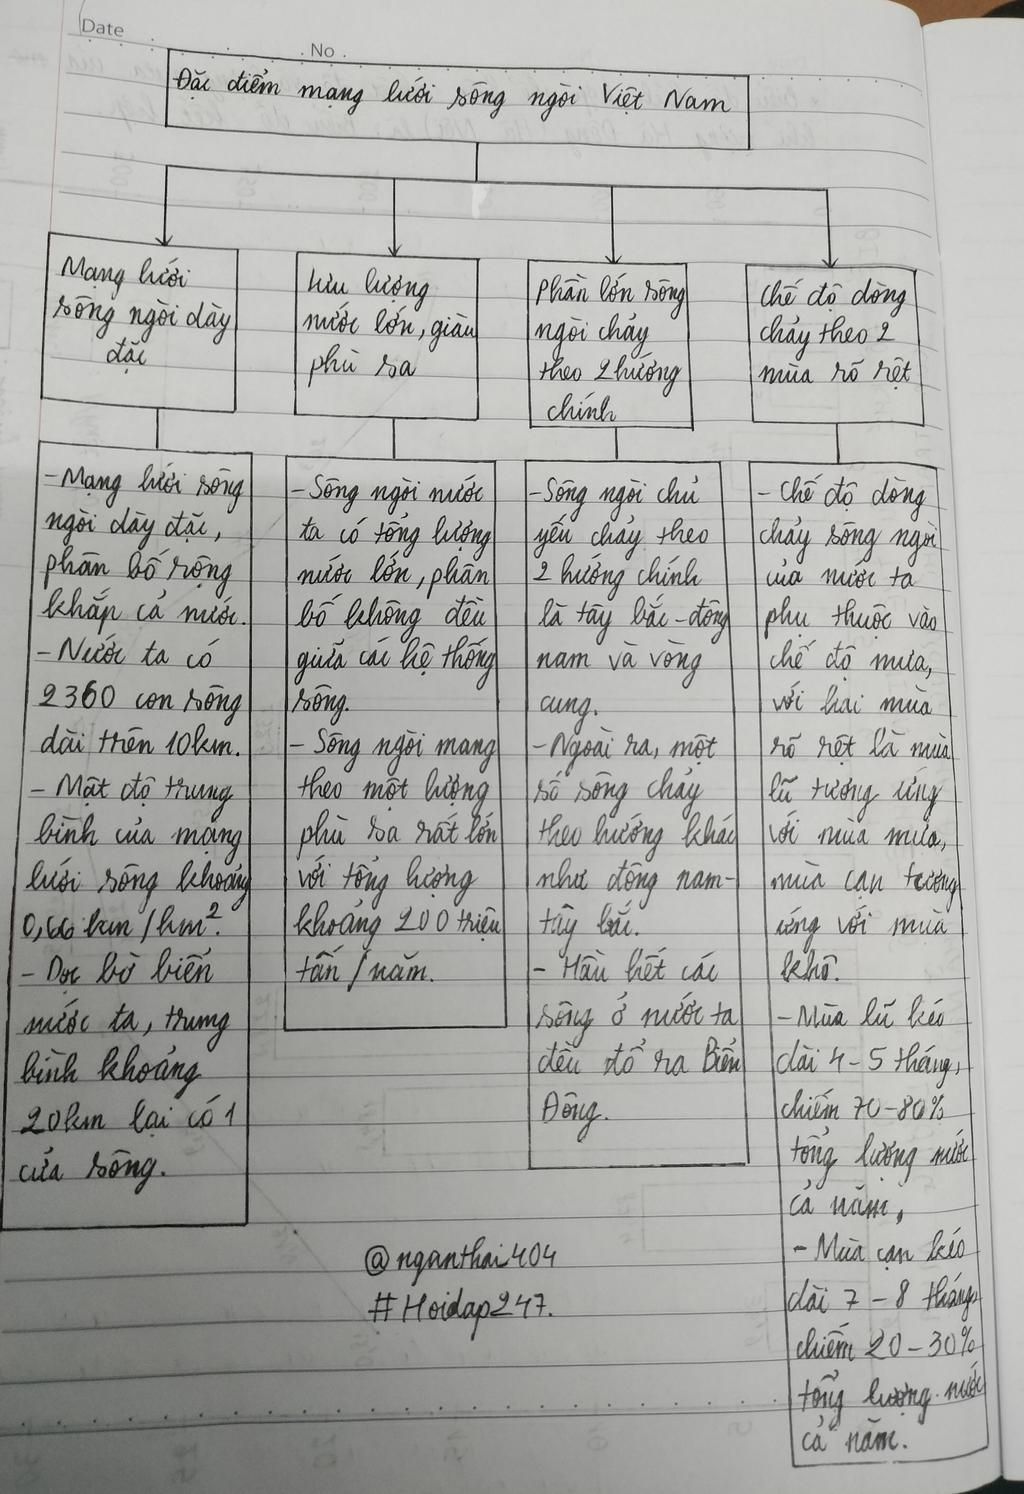 Date
No
Đặc điểm mạng lưới sông ngòi Việt Nam
Mạng lưới
sông ngòi dày
đặc
Lưu lượng
nước lớn, giàu
phù sa
Phần lớn sông
ngòi chảy
theo 2 hướng
chính
Chế độ dòng
chảy theo 2
mùa rõ rệt
- Mạng lưới sông
ngòi dày đặc,
phân bố rộng
khắp cả nước.
- Nước ta có
2360 con sông
dài trên 10km.
- Mật độ trung
bình của mạng
lưới sông khoảng
0,66 km/km².
- Dọc bờ biển
nước ta, trung
bình khoảng
20km lại có 1
cửa sông.
- Sông ngòi nước
ta có tổng lượng
nước lớn, phân
bố không đều
giữa các hệ thống
sông.
- Sông ngòi mang
theo một lượng
phù sa rất lớn
với tổng lượng
khoảng 200 triệu
tấn/năm.
- Sông ngòi chủ
yếu chảy theo
2 hướng chính
là tây bắc - đông
nam và vòng
cung.
- Ngoài ra, một
số sông chảy
theo hướng khác
như đông nam-
tây bắc.
- Hầu hết các
sông ở nước ta
đều đổ ra Biển
Đông.
- Chế độ dòng
chảy sông ngòi
của nước ta
phụ thuộc vào
chế độ mưa,
với hai mùa
rõ rệt là mùa
lũ tương ứng
với mùa mưa,
mùa cạn tương
ứng với mùa
khô.
- Mùa lũ kéo
dài 4-5 tháng,
chiếm 70-80%
tổng lượng nước
cả năm,
- Mùa cạn kéo
dài 7-8 tháng
chiếm 20-30%
tổng lượng nước
cả năm.
@nganthai404
#Hoidap247.